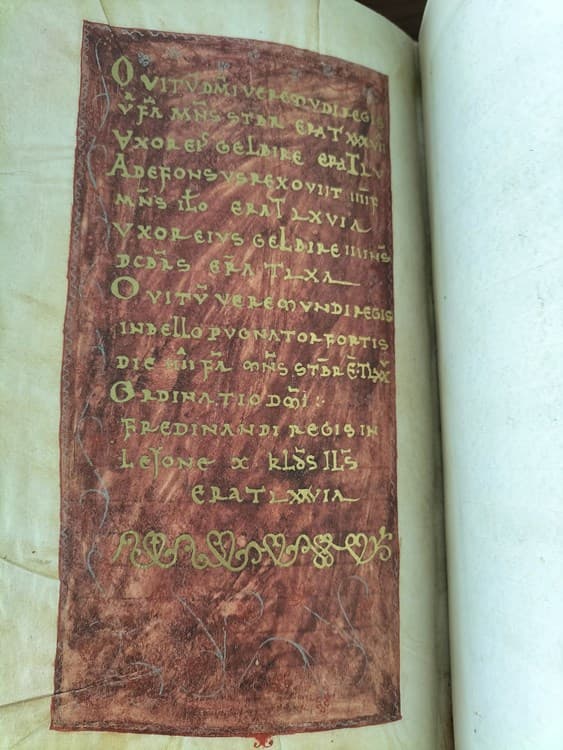 OVITV DMI VEREMVDI REGIS
VI FA MNS STBR ERA T XXXVII
VXOR EIS GELBIRE ERA T L V
ADEFONSVS REX OVIIT IIII F
MNS ERA T LXVIA
VXOR EIVS GELBIRE IIII NS
DCBRS ERA T LXA
OVITV VEREMVNDI REGIS
IN BELLO PVGNATOR FORTIS
DIE IIII FA MNS STBR E T LXX
ORDINATIO DMI :
FREDINANDI REGIS IN
LEIONE X KLDS ILS
ERA T LXXVIA